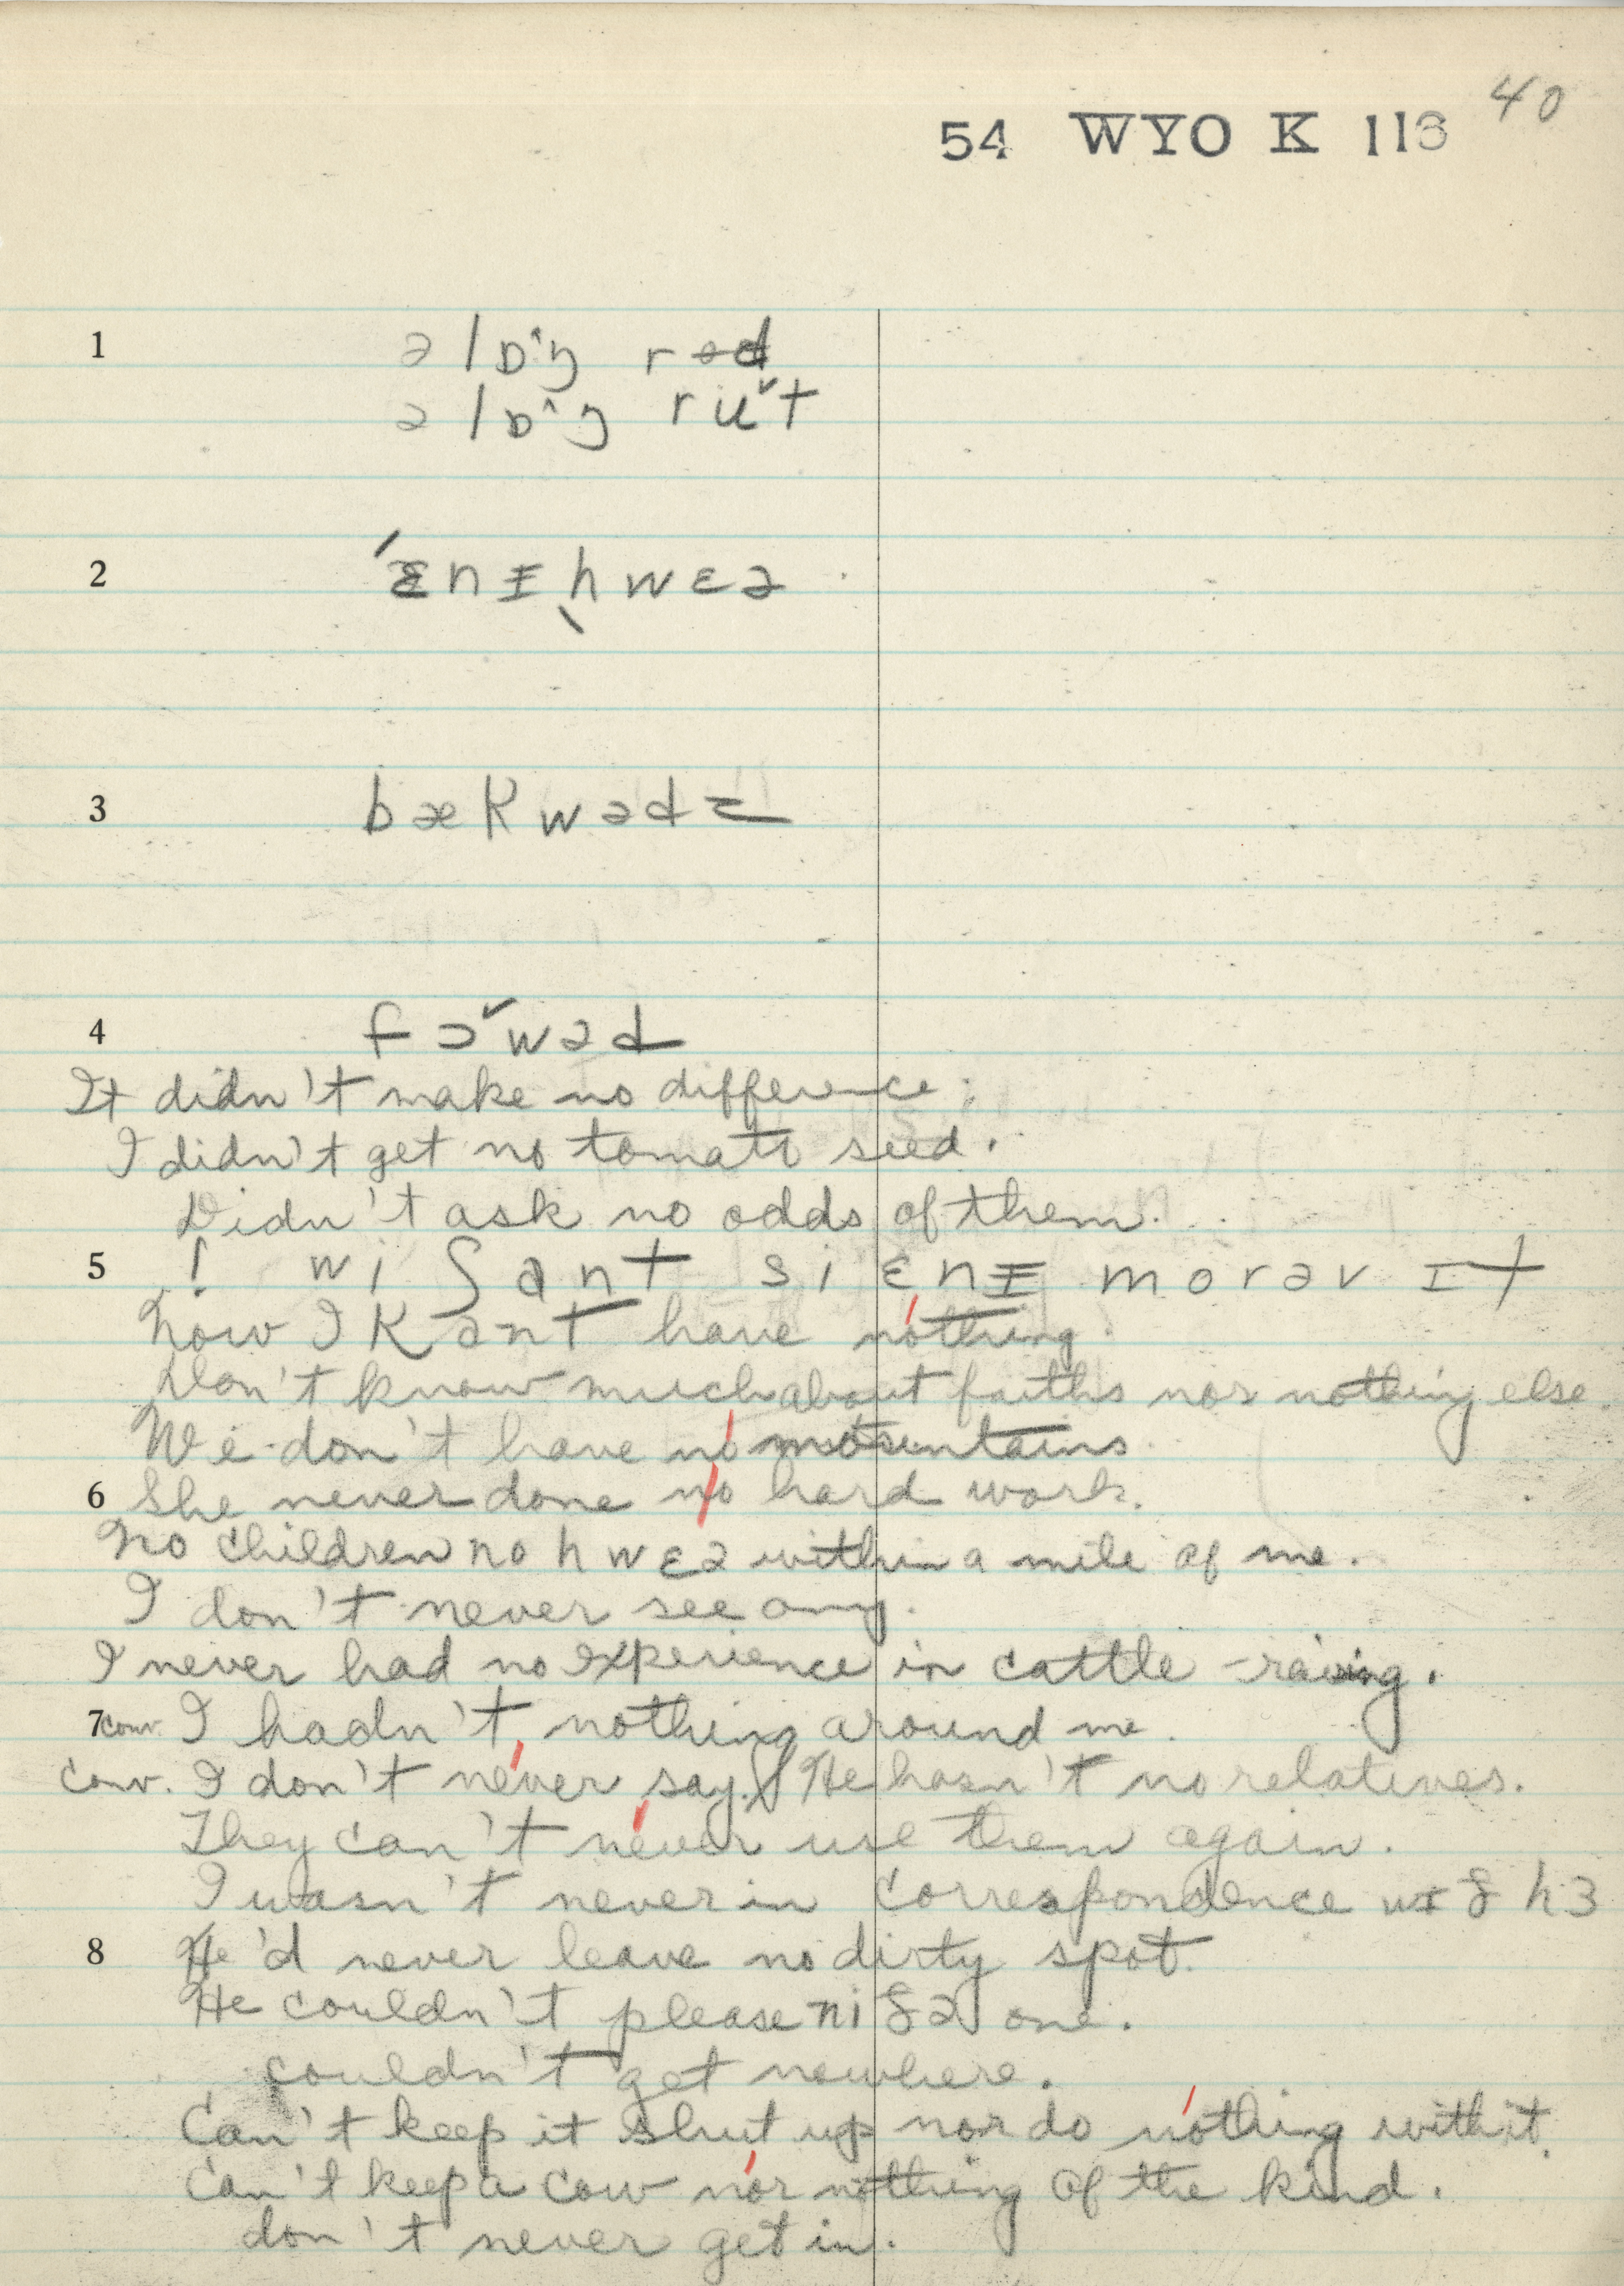 40
54 WYO K 113
1 ə lɒ^ŋ rod
ə lɒ^ŋ rʉˇt
2 ˈɛnɪˌhwɛə
3 bækwədz
4 fɔˇwəd
It didn't make no difference.
I didn't get no tomato seed.
Didn't ask no odds of them.
5 ! wi ʃant si ɛnɪ mor əv ɪt
Now I kant have nothing.
Don't know much about faiths nor nothing else.
We don't have no mountains.
6 She never done no hard work.
No children no hwɛə within a mile of me.
I don't never see any.
I never had no experience in cattle-raising.
7 conv. I hadn't nothing around me.
conv. I don't never say. He hasn't no relatives.
They can't never use them again.
I wasn't never in correspondence wɪð hɜ
8 He'd never leave no dirty spot.
He couldn't please niðə one.
couldn't get nowhere.
Can't keep it shut up nor do nothing with it.
Can't keep a cow nor nothing of the kind.
don't never get in.